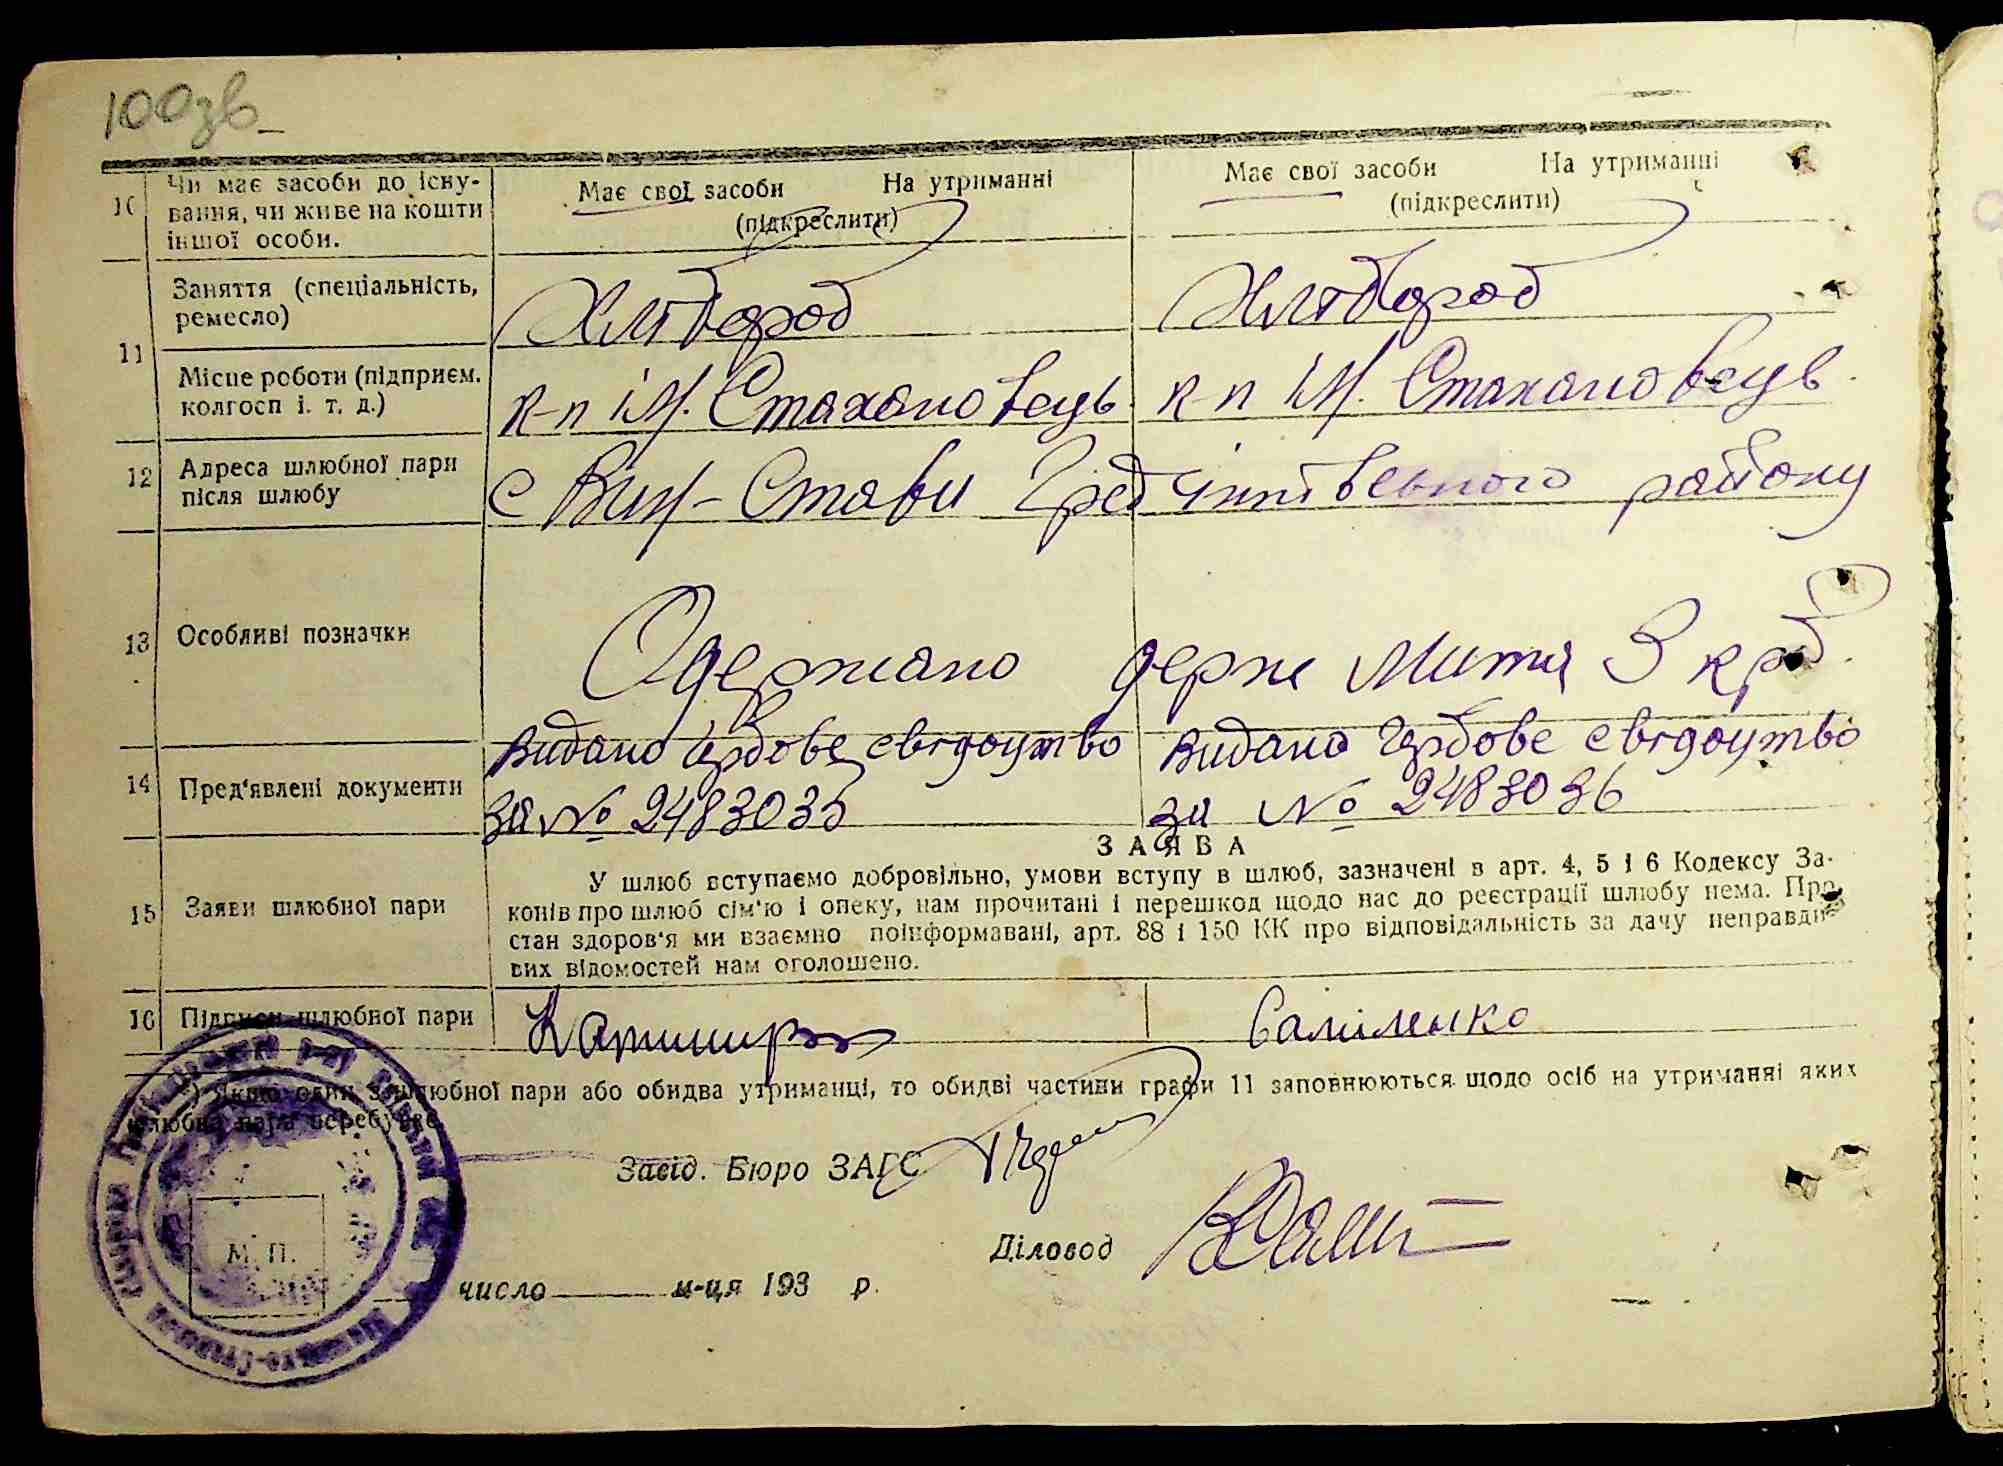 100зв
10
Чи має засоби до існу-
вання, чи живе на кошти
іншої особи.
Має свої засоби На утриманні
(підкреслити)
Має свої засоби На утриманні
(підкреслити)
11
Заняття (спеціальність,
ремесло)
Хлібороб
Хлібороб
Місце роботи (підприєм.
колгосп і. т. д.)
к-п ім. Стахановець
к-п ім. Стахановець
12
Адреса шлюбної пари
після шлюбу
с Виш-Стави Гребінківського району
13
Особливі позначки
Одержано держ мита 3 крб.
14
Пред'явлені документи
видано гербове свідоцтво
за № 2483035
видано гербове свідоцтво
за № 2483036
15
Заяви шлюбної пари
ЗАЯВА
У шлюб вступаємо добровільно, умови вступу в шлюб, зазначені в арт. 4, 5 і 6 Кодексу За-
конів про шлюб сім'ю і опеку, нам прочитані і перешкод щодо нас до реєстрації шлюбу нема. Про
стан здоров'я ми взаємно поінформавані, арт. 88 і 150 КК про відповідальність за дачу неправди-
вих відомостей нам оголошено.
16
Підписи шлюбної пари
Саліленко
) Якщо один з шлюбної пари або обидва утриманці, то обидві частини графи 11 заповнюються щодо осіб на утриманні яких
шлюбна пара перебуває
Завід. Бюро ЗАГС
Діловод
М. П.
число м-ця 193 р.